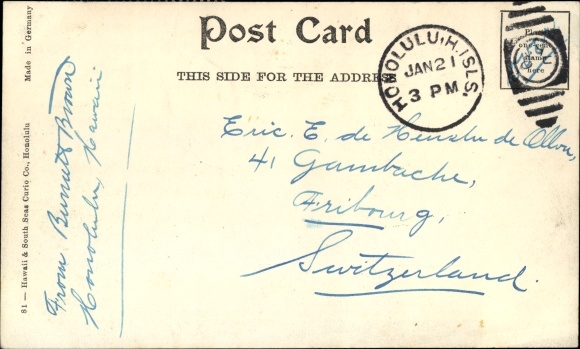 Post Card
THIS SIDE FOR THE ADDRESS
HONOLULU, H. ISLS.
JAN 21
3 PM
Place
one-cent
stamp
here
Eric. E. de
41 Gambache,
Fribourg,
Switzerland.
From Burnett Brown
Honolulu, Hawaii
81 — Hawaii & South Seas Curio Co., Honolulu
Made in Germany